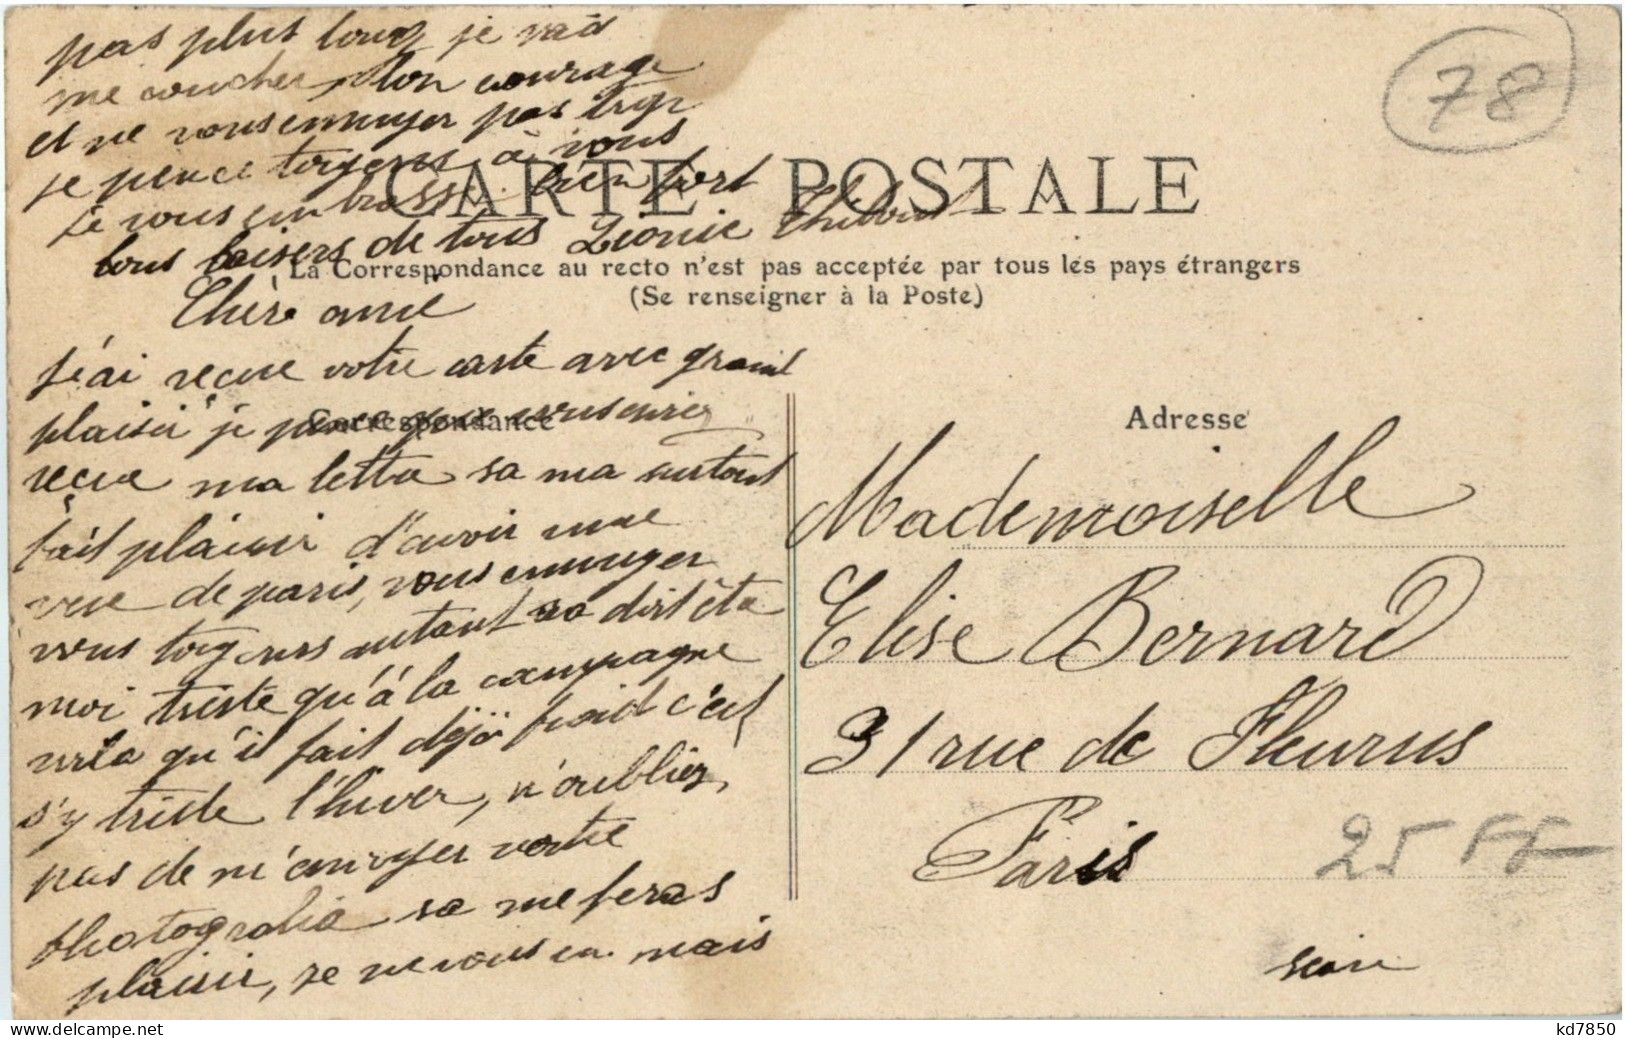 pas plus long je vais
me coucher bon courage
et ne vous ennuyer pas trop
je pence togours à vous
je vous embrasse bien fort
bons baisers de tous Léonie Thibout
CARTE POSTALE
La Correspondance au recto n'est pas acceptée par tous les pays étrangers
(Se renseigner à la Poste)
Chère amie
j'ai reçue votre carte avec grand
plaisir je pence que vous
reçue ma lettre sa ma surtout
fait plaisir d'avoir une
vue de paris, vous ennuyer
vous togours autant sa doit être
moi triste qu'à la campagne
voila qu'il fait déjà froid c'est
s'y triste l'hiver, n'oublier
pas de m'envoyer votre
photografie sa me feras
plaisir, je ne vous en mais
Correspondance
Adresse
Mademoiselle
Elise Bernard
31 rue de Fleurus
Paris
seine
78
25 FF
kd7850